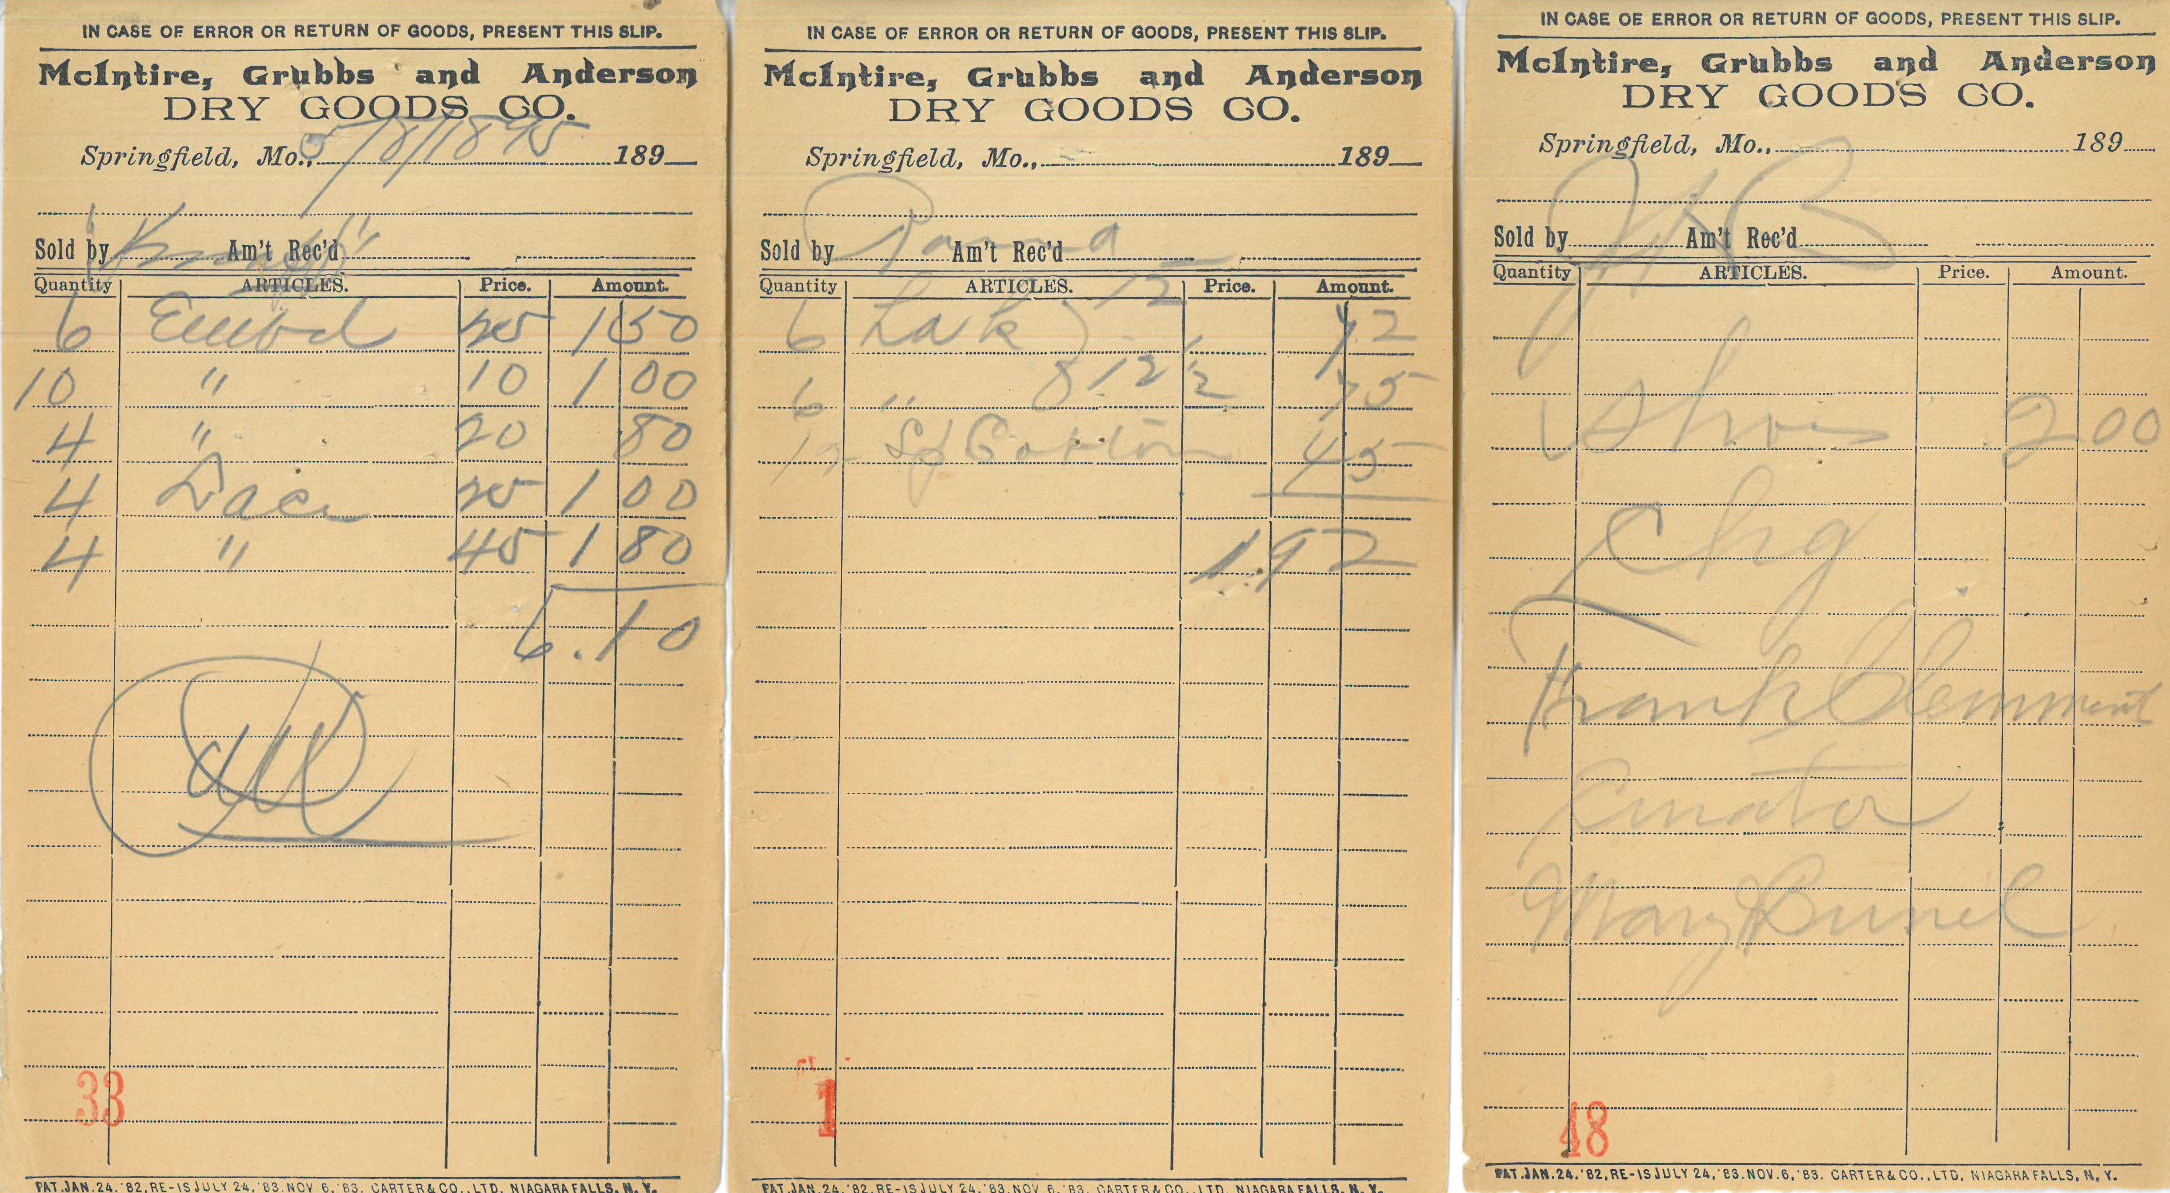 IN CASE OF ERROR OR RETURN OF GOODS, PRESENT THIS SLIP.
McIntire, Grubbs and Anderson
DRY GOODS CO.
Springfield, Mo., 5/8/1895 189
Sold by Am't Rec'd
Quantity ARTICLES. Price. Amount.
6 Embd 25 1 50
10 " 10 1 00
4 " 20 80
4 Lace 25 1 00
4 " 45 1 80
6.10
33
PAT. JAN. 24, '82, RE-IS JULY 24, '83. NOV. 6, '83. CARTER & CO., LTD. NIAGARA FALLS, N. Y.
IN CASE OF ERROR OR RETURN OF GOODS, PRESENT THIS SLIP.
McIntire, Grubbs and Anderson
DRY GOODS CO.
Springfield, Mo., 189
Sold by Am't Rec'd
Quantity ARTICLES. Price. Amount.
6 12 72
6 " 8 12½ 75
12 Cotton 45
1.92
1
PAT. JAN. 24, '82, RE-IS JULY 24, '83. NOV. 6, '83. CARTER & CO., LTD. NIAGARA FALLS, N. Y.
IN CASE OF ERROR OR RETURN OF GOODS, PRESENT THIS SLIP.
McIntire, Grubbs and Anderson
DRY GOODS CO.
Springfield, Mo., 189
Sold by Am't Rec'd
Quantity ARTICLES. Price. Amount.
1 Shoes 2 00
Chg
Frank Clemment
Curator
Mary
48
PAT. JAN. 24, '82, RE-IS JULY 24, '83. NOV. 6, '83. CARTER & CO., LTD. NIAGARA FALLS, N. Y.